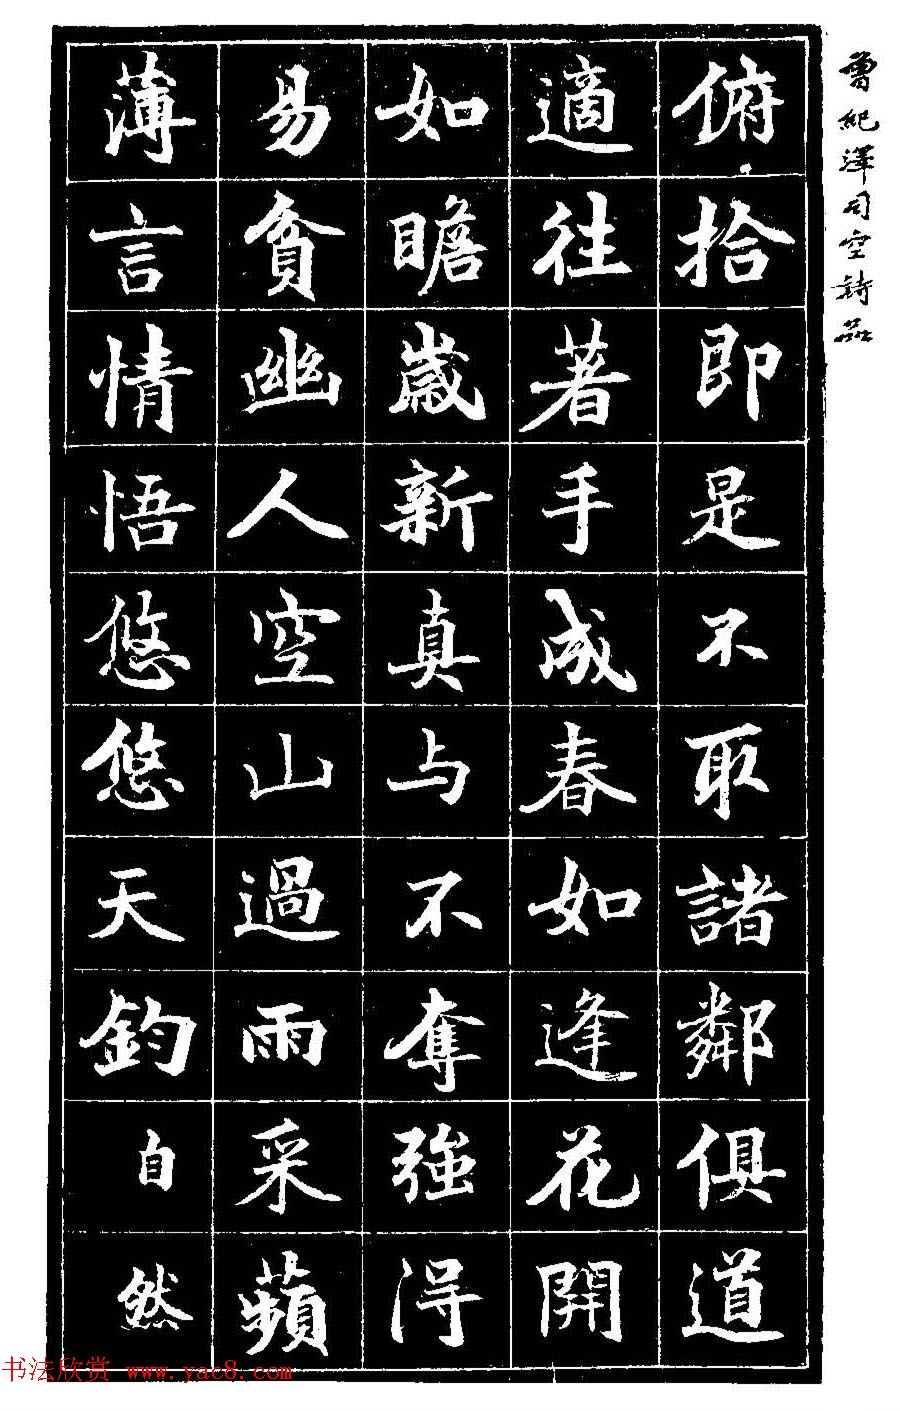 曾紀澤司空詩品
俯拾即是不取諸鄰俱道
適往著手成春如逢花開
如瞻歲新真与不奪強得
易貧幽人空山過雨采蘋
薄言情悟悠悠天鈞自然
书法欣赏 www.yac8.com